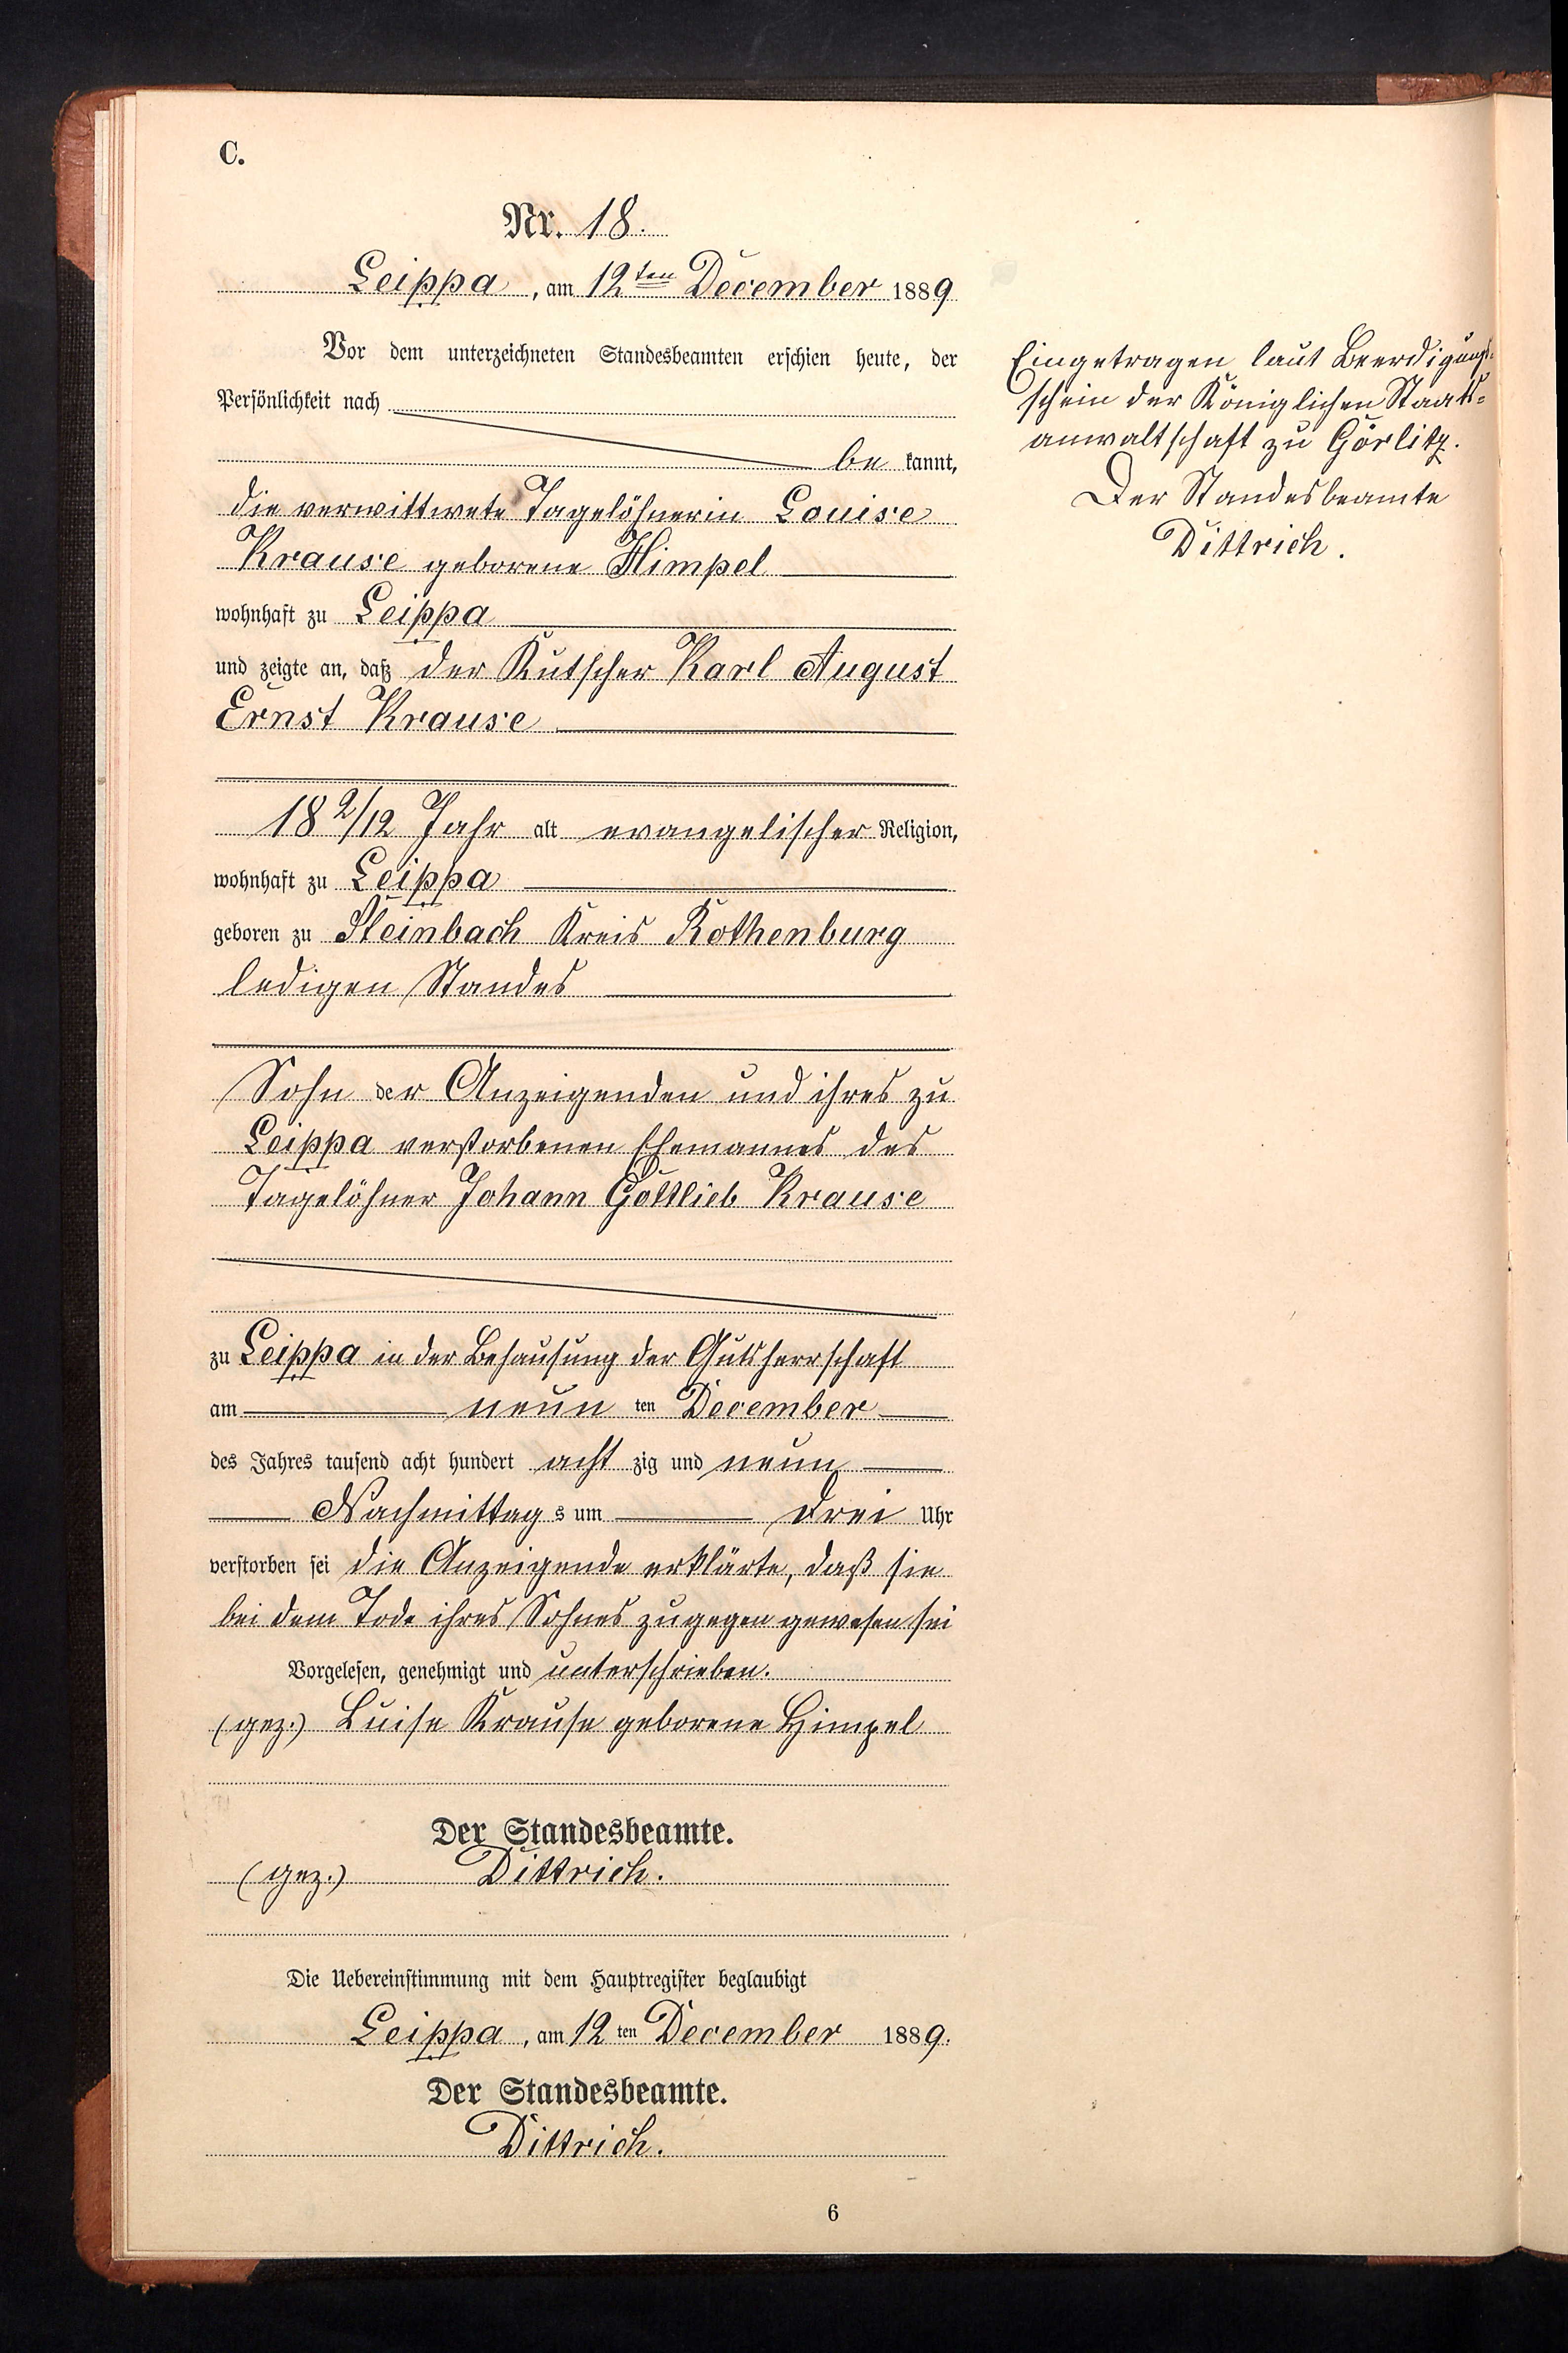 C.
Nr. 18.
Leippa, am 12ten December 1889
Vor dem unterzeichneten Standesbeamten erschien heute, der
Persönlichkeit nach
be kannt,
die verwittwete Tagelöhnerin Louise
Krause geborene Himpel
wohnhaft zu Leippa
und zeigte an, daß der Kutscher Karl August
Ernst Krause
18 2/12 Jahr alt evangelischer Religion,
wohnhaft zu Leippa
geboren zu Steinbach Kreis Rothenburg
ledigen Standes
Sohn der Anzeigenden und ihres zu
Leippa verstorbenen Ehemannes des
Tagelöhner Johann Gottlieb Krause
zu Leippa in der Behausung der Gutsherrschaft
am neun ten December
des Jahres tausend acht hundert acht zig und neun
Nachmittag s um drei Uhr
verstorben sei die Anzeigende erklärte, daß sie
bei dem Tode ihres Sohnes zugegen gewesen sei
Vorgelesen, genehmigt und unterschrieben.
(gez.) Luise Krause geborene Himpel
Der Standesbeamte.
(gez.) Dittrich.
Die Uebereinstimmung mit dem Hauptregister beglaubigt
Leippa, am 12 ten December 1889.
Der Standesbeamte.
Dittrich.
6
Eingetragen laut Beerdigungs-
schein der Königlichen Staats-
anwaltschaft zu Görlitz.
Der Standesbeamte
Dittrich.